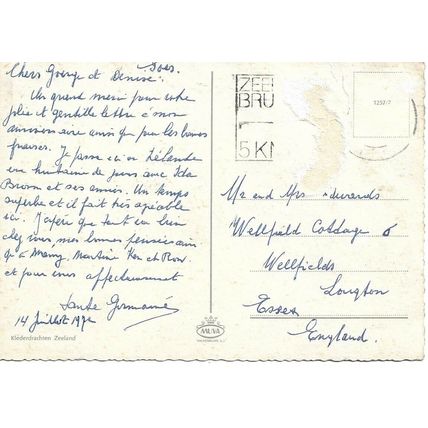 Goes.
Chers George et Denise:
Un grand merci pour votre
jolie et gentille lettre à mon
anniversaire ainsi que pour les bonnes
Je passe ici en Zélande
une huitaine de jours avec Ida
Broom et ses amis. Un temps
superbe et il fait très agréable
ici. J'espère que tout va bien
chez vous, mes bonnes pensées ainsi
qu'à Mamy, Martine Ken et Ron.
et pour vous affectueusement
Tante Germaine
14 Juillet 197
Klederdrachten Zeeland
ZEE
BRU
5 KM
1252/7
Mr and Mrs
Wellfield Cottage 6
Wellfields
Longton
Essex
England.
MUVA
VALKENBURG